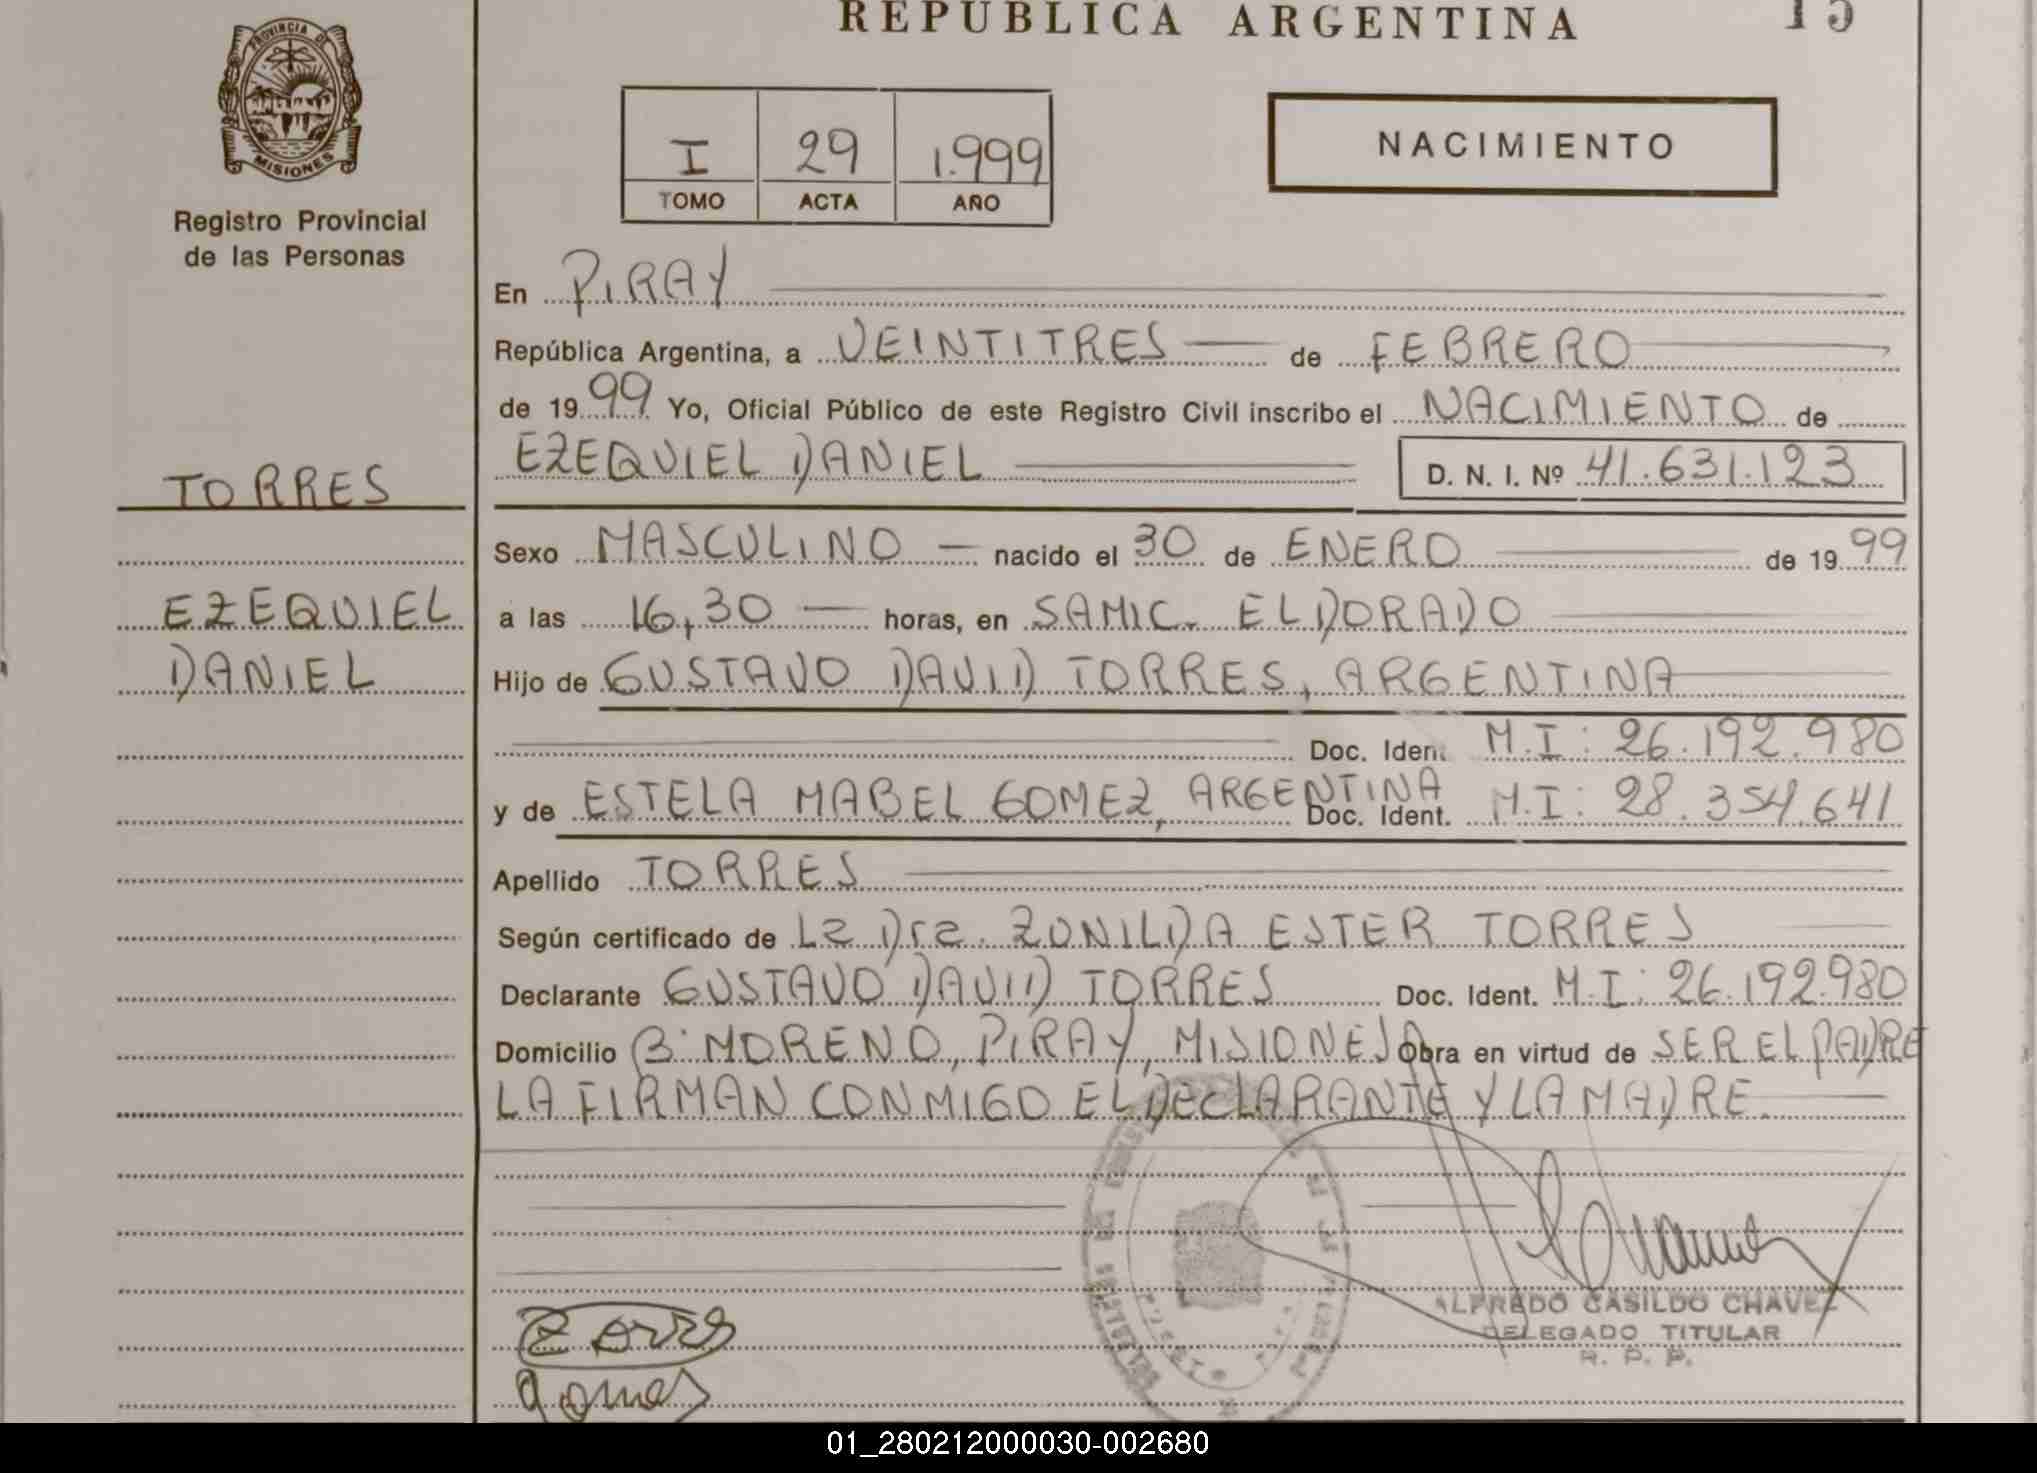 REPUBLICA ARGENTINA 15
PROVINCIA DE
MISIONES
Registro Provincial
de las Personas
I 29 1.999
TOMO ACTA AÑO
NACIMIENTO
En PIRAY
República Argentina, a VEINTITRES de FEBRERO
de 1999 Yo, Oficial Público de este Registro Civil inscribo el NACIMIENTO de
EZEQUIEL DANIEL D. N. I. Nº 41.631.123
TORRES
EZEQUIEL
DANIEL
Sexo MASCULINO nacido el 30 de ENERO de 1999
a las 16,30 horas, en SAMIC. ELDORADO
Hijo de GUSTAVO DAVID TORRES, ARGENTINA
Doc. Ident. M.I: 26.192.980
y de ESTELA MABEL GOMEZ, ARGENTINA Doc. Ident. M.I: 28.354.641
Apellido TORRES
Según certificado de La Dra. ZUNILDA ESTER TORRES
Declarante GUSTAVO DAVID TORRES Doc. Ident. M.I: 26.192.980
Domicilio Bº MORENO, PIRAY, MISIONES Obra en virtud de SER EL PADRE
LA FIRMAN CONMIGO EL DECLARANTE Y LA MADRE.
ALFREDO CASILDO CHAVEZ
DELEGADO TITULAR
R. P. P.
Torres
Gomez
01_280212000030-002680